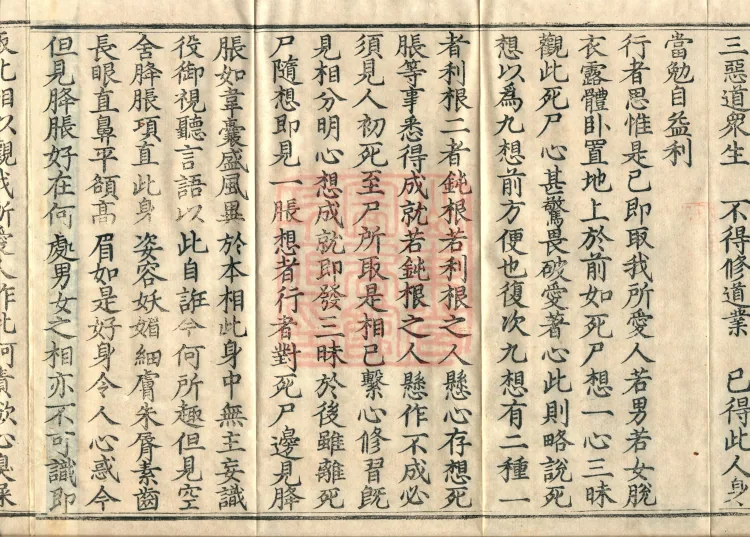 三惡道衆生　不得修道業　已得此人身
當勉自益利
行者思惟是已即取我所愛人若男若女脫
衣露體卧置地上於前如死尸想一心三昧
觀此死尸心甚驚畏破愛著心此則略說死
想以爲九想前方便也復次九想有二種一
者利根二者鈍根若利根之人懸心存想死
脹等事悉得成就若鈍根之人懸作不成必
須見人初死至尸所取是相已繫心修習旣
見相分明心想成就即發三昧於後雖離死
尸隨想即見一脹想者行者對死尸邊見膖
脹如韋囊盛風異於本相此身中無主妄識
役御視聽言語以此自誑今何所趣但見空
舍膖脹項直此身姿容妖媚細膚朱脣素齒
長眼直鼻平額高眉如是好身令人心惑今
但見膖脹好在何處男女之相亦不可識即
取此相以觀我所愛人作此呵責欲心臭屎